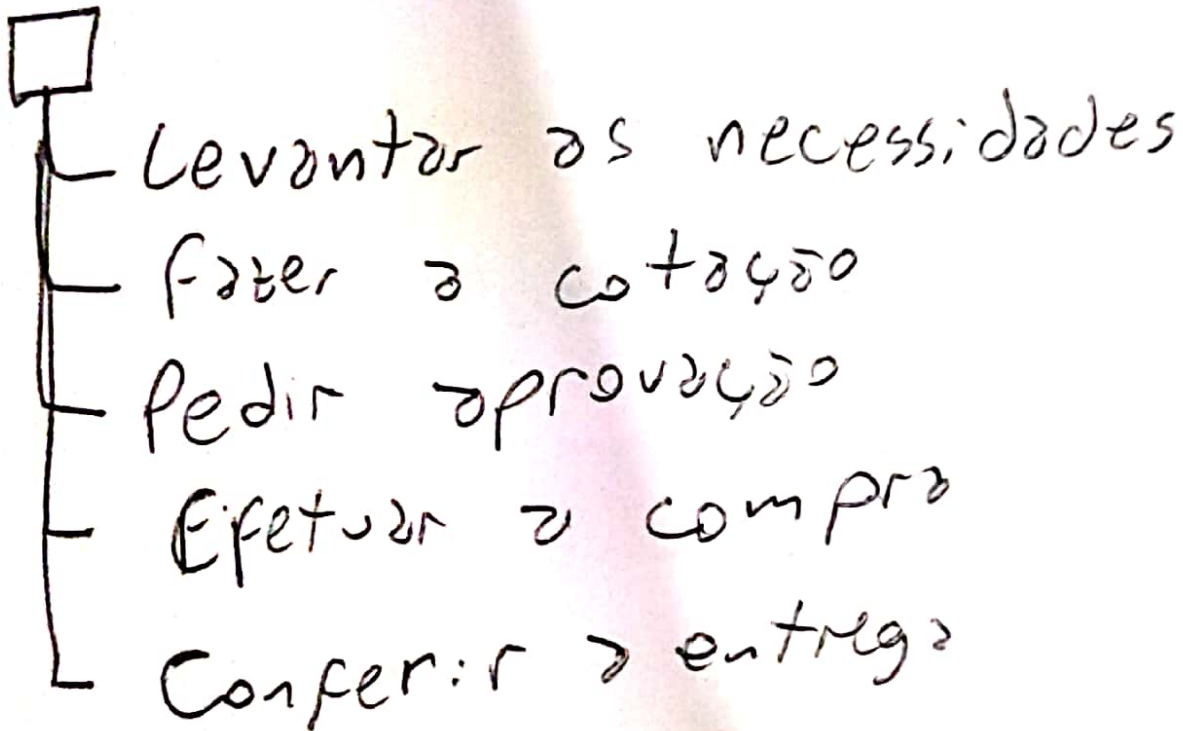 Levantar as necessidades
Fazer a cotação
Pedir aprovação
Efetuar a compra
Conferir a entrega